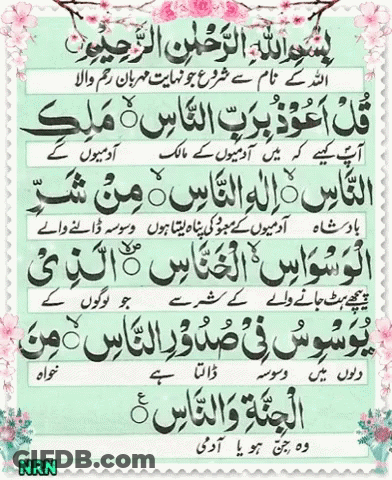 بِسْمِ اللّٰهِ الرَّحْمٰنِ الرَّحِيْمِ
اللہ کے نام سے شروع جو نہایت مہربان رحم والا
قُلْ اَعُوْذُ بِرَبِّ النَّاسِ ۙ مَلِكِ
آپ کہیے کہ میں آدمیوں کے مالک آدمیوں کے
النَّاسِ ۙ اِلٰهِ النَّاسِ ۙ مِنْ شَرِّ
بادشاہ آدمیوں کے معبود کی پناہ لیتا ہوں وسوسہ ڈالنے والے
الْوَسْوَاسِ ۙ الْخَنَّاسِ ۙ الَّذِيْ
پیچھے ہٹ جانے والے کے شر سے جو لوگوں کے
يُوَسْوِسُ فِيْ صُدُوْرِ النَّاسِ ۙ مِنَ
دلوں میں وسوسہ ڈالتا ہے خواہ
الْجِنَّةِ وَالنَّاسِ ع
وہ جن ہو یا آدمی
GIFDB.com
NRN